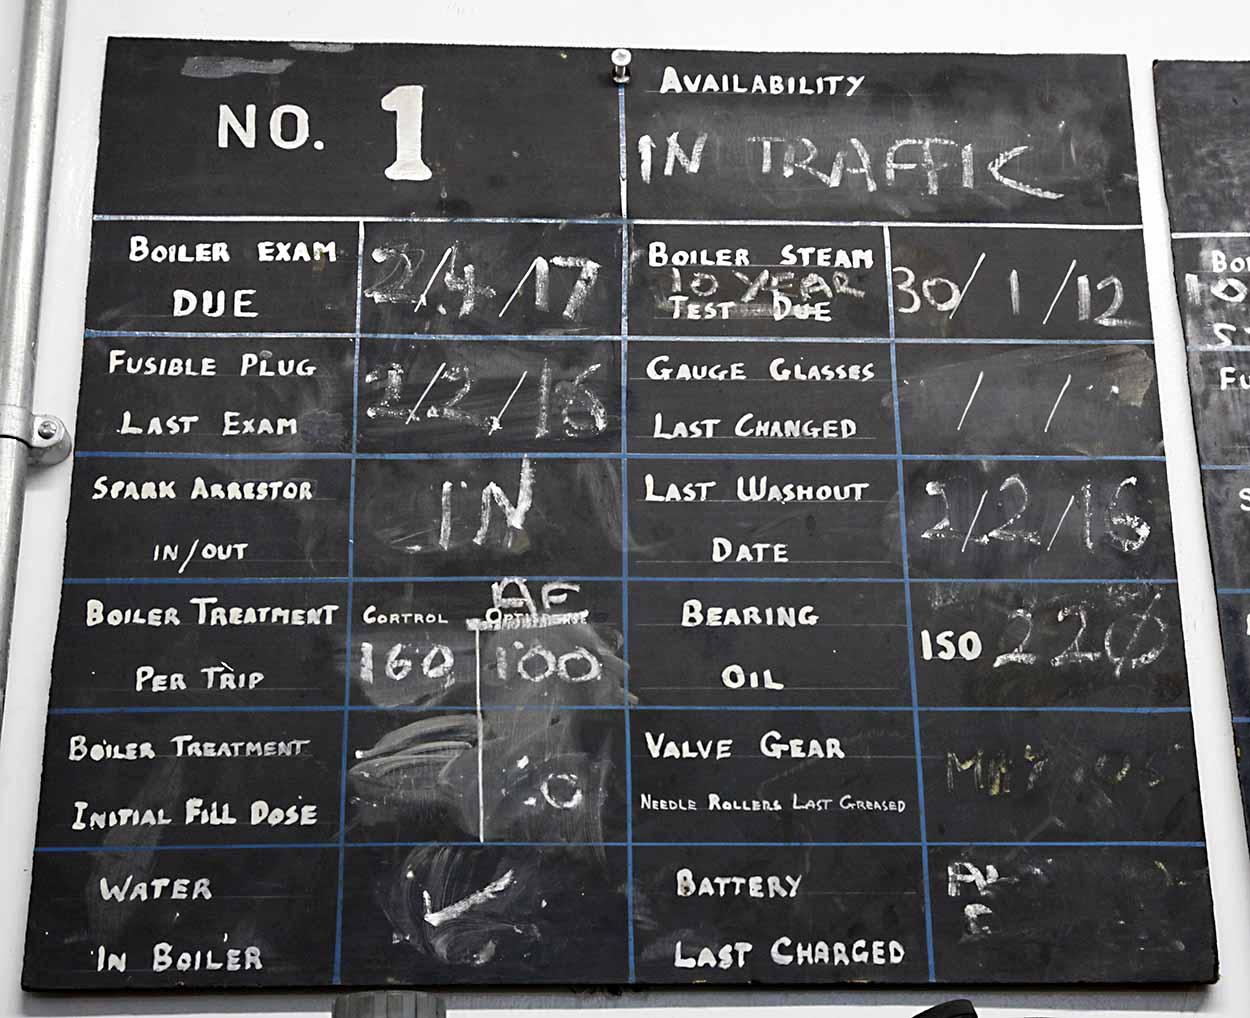 NO. 1
AVAILABILITY
IN TRAFFIC
BOILER EXAM
DUE
2/4/17
BOILER STEAM
10 YEAR
TEST DUE
30/1/12
FUSIBLE PLUG
LAST EXAM
2/2/16
GAUGE GLASSES
LAST CHANGED
/ /
SPARK ARRESTOR
IN/OUT
IN
LAST WASHOUT
DATE
2/2/16
BOILER TREATMENT
PER TRIP
CORTROL
AF
160
100
BEARING
OIL
ISO 220
BOILER TREATMENT
INITIAL FILL DOSE
VALVE GEAR
NEEDLE ROLLERS LAST GREASED
MAY
WATER
IN BOILER
✓
BATTERY
LAST CHARGED
BO
FU
S